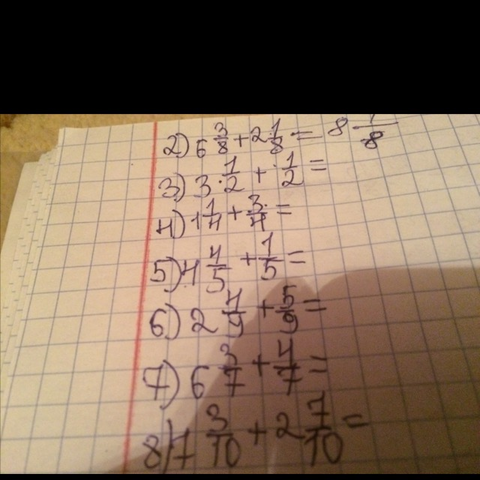 2) 6 3/8 + 2 1/8 = 8 1/8
3) 3 1/2 + 1/2 =
4) 1 1/4 + 3/4 =
5) 4 4/5 + 1/5 =
6) 2 4/9 + 5/9 =
7) 6 3/7 + 4/7 =
8) 1 3/10 + 2 7/10 =